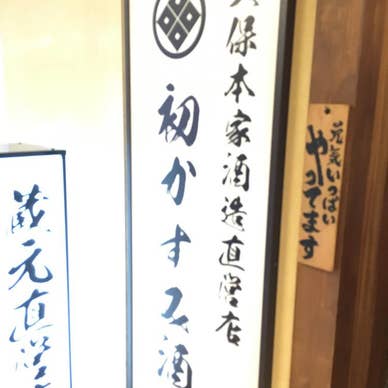 久保本家酒造直営店
初かすみ酒
蔵元直営
元気いっぱい
やってます